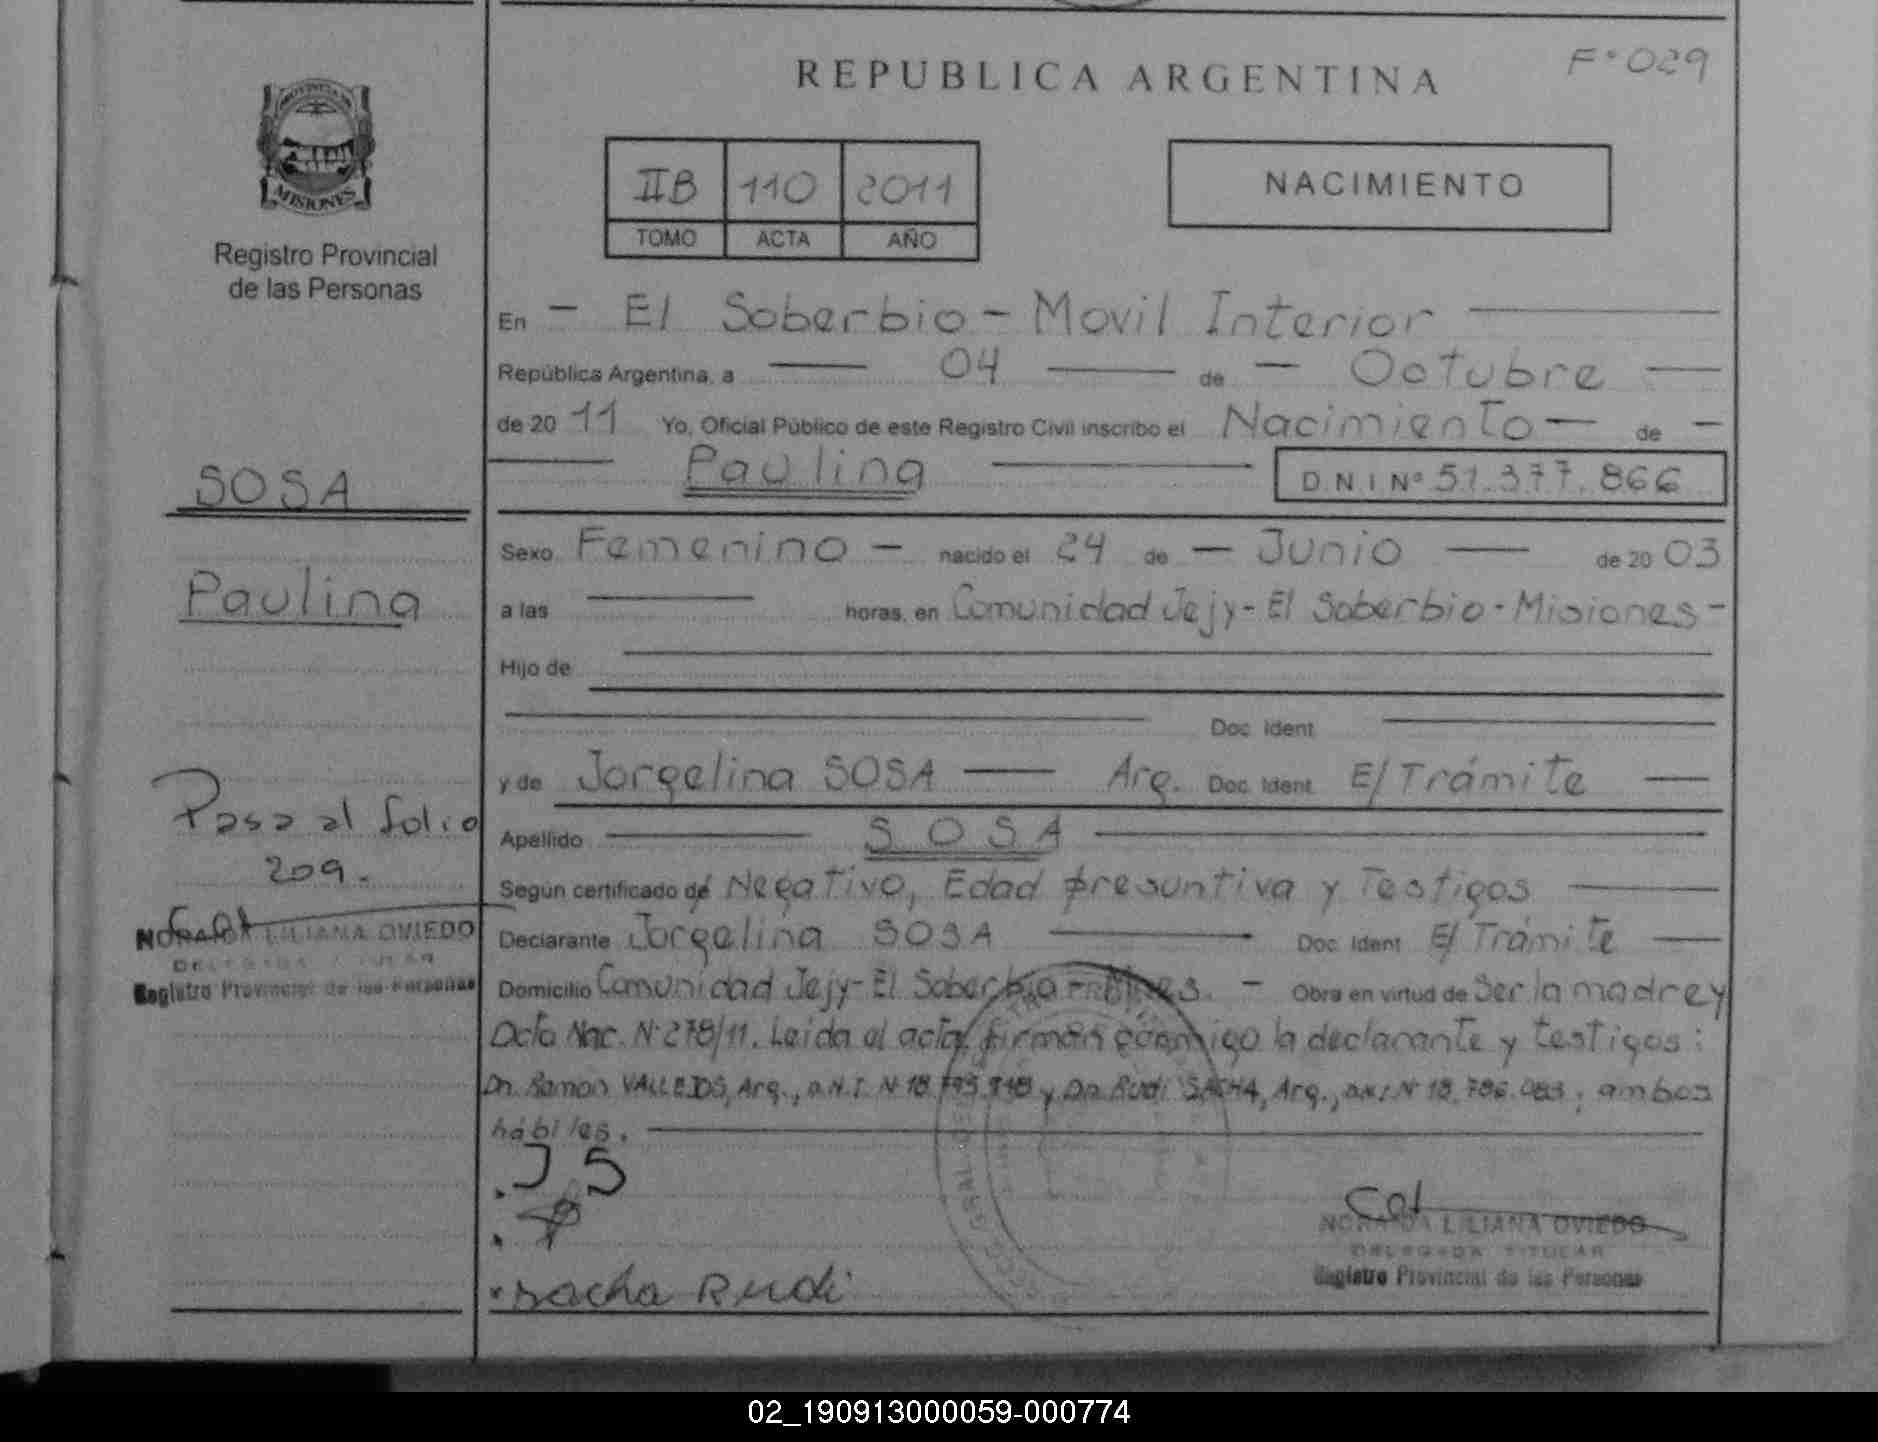 F·029
REPUBLICA ARGENTINA
PROVINCIA DE
MISIONES
Registro Provincial
de las Personas
IIB 110 2011
TOMO ACTA AÑO
NACIMIENTO
En - El Soberbio - Movil Interior
República Argentina, a 04 de - Octubre
de 2011 Yo, Oficial Público de este Registro Civil inscribo el Nacimiento - de -
Paulina D.N.I Nº 51.377.866
SOSA
Paulina
Sexo Femenino - nacido el 24 de - Junio de 2003
a las horas, en Comunidad Jejy - El Soberbio - Misiones -
Hijo de
Doc. Ident.
y de Jorgelina SOSA Arg. Doc. Ident. E/Trámite
Apellido SOSA
Según certificado de Negativo, Edad presuntiva y Testigos
Declarante Jorgelina SOSA Doc. Ident. E/Trámite
Domicilio Comunidad Jejy - El Soberbio - Mnes. - Obra en virtud de Ser la madre y
Dcto Nac. Nº 278/11. Leida el acta, firman conmigo la declarante y testigos:
Dn. Ramon VALLEJOS, Arg., D.N.I. Nº y Dn Rudi SACHA, Arg., D.N.I Nº 18.786.083; ambos
hábiles.
Pasa al folio
209.
NORAIDA LILIANA OVIEDO
DELEGADA TITULAR
Registro Provincial de las Personas
J S
sacha Rudi
NORAIDA LILIANA OVIEDO
DELEGADA TITULAR
Registro Provincial de las Personas
02_190913000059-000774